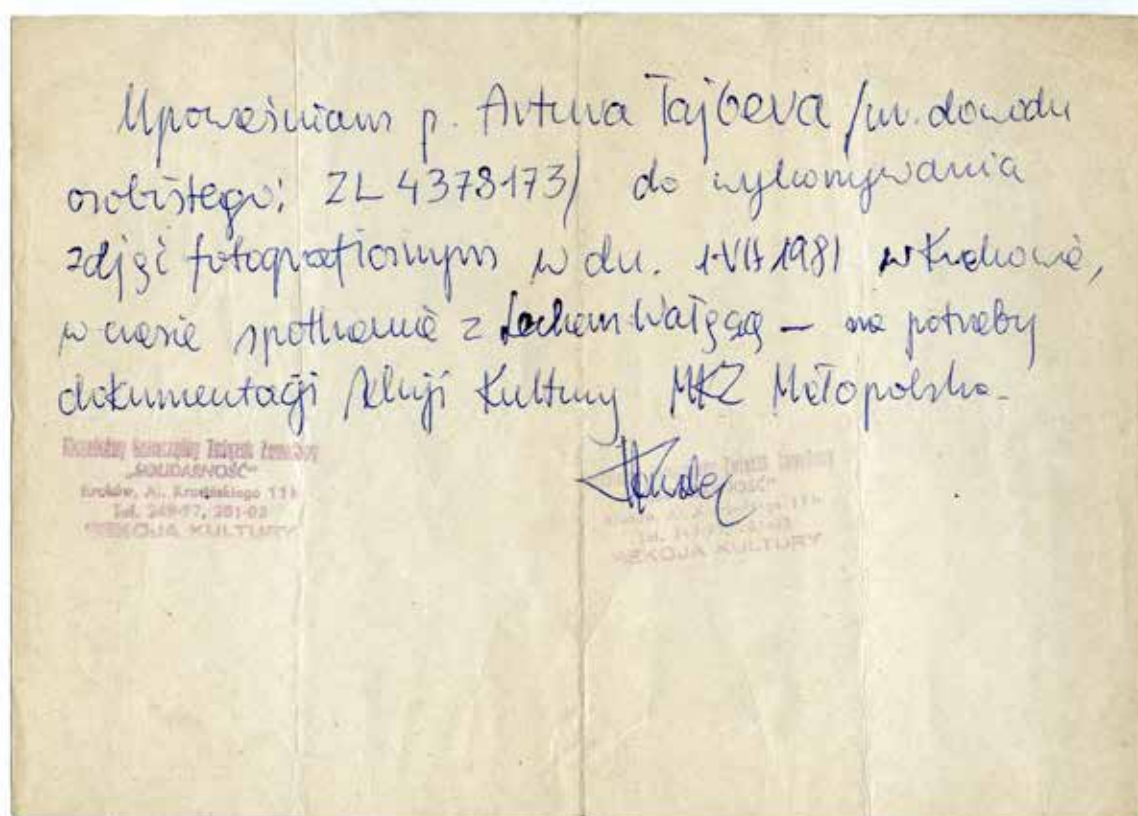 Upoważniam p. Artura Tajbera /nr. dowodu
osobistego: ZL 4378173/ do wykonywania
zdjęć fotograficznym w dn. 1.VII 1981 w Krakowie,
w czasie spotkania z Lechem Wałęsą — na potrzeby
dokumentacji Sekcji Kultury MKZ Małopolska.
Niezależny Samorządny Związek Zawodowy
„SOLIDARNOŚĆ"
Kraków, Al. Krasińskiego 11b
SEKCJA KULTURY
Związek Zawodowy
SEKCJA KULTURY